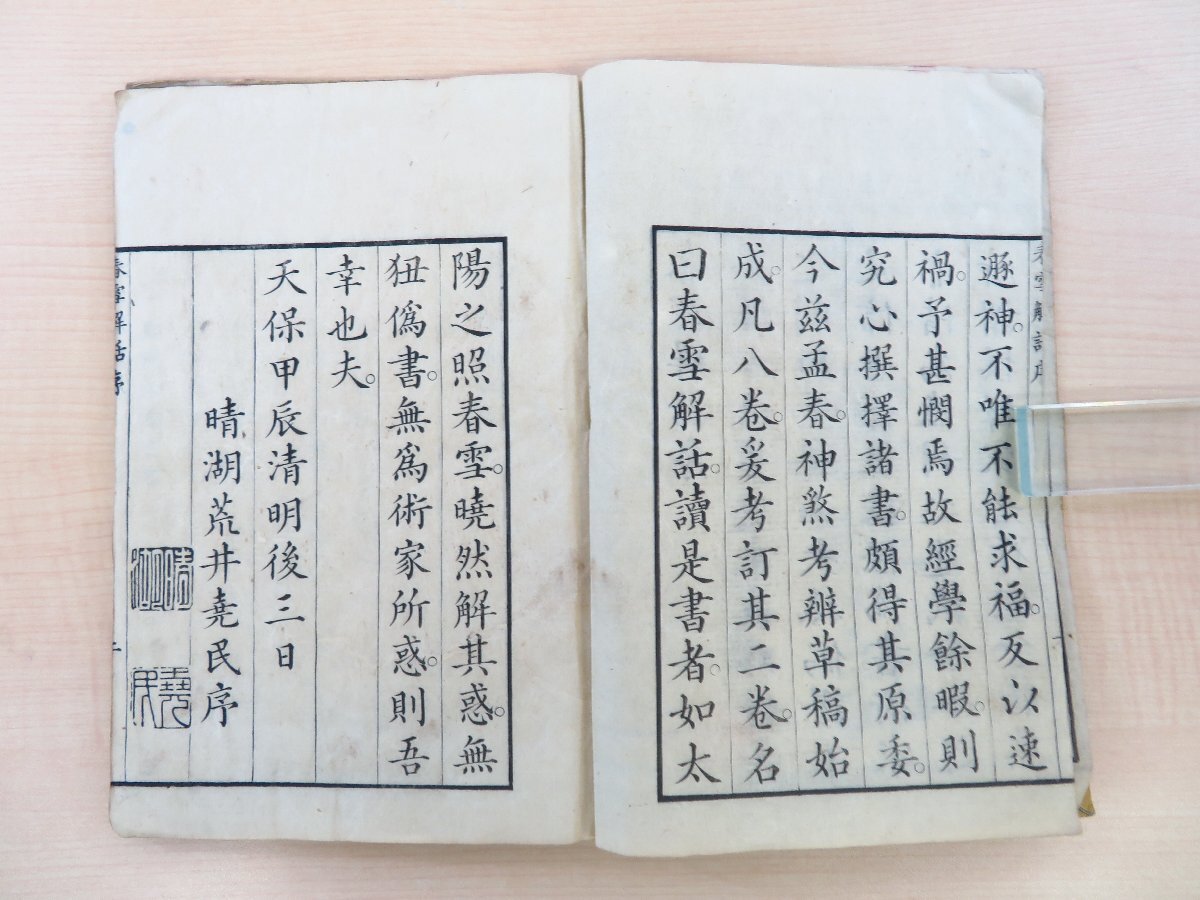 春雪解話序
遯神。不唯不能求福。反以速
禍。予甚憫焉故經學餘暇。則
究心撰擇諸書。頗得其原委。
今茲孟春。神煞考辨草稿始
成。凡八卷。爰考訂其二卷。名
曰春雪解話。讀是書者。如太
陽之照春雪。曉然解其惑。無
狃僞書。無爲術家所惑。則吾
幸也夫。
天保甲辰清明後三日
晴湖荒井堯民序
堯民
春雪解話序